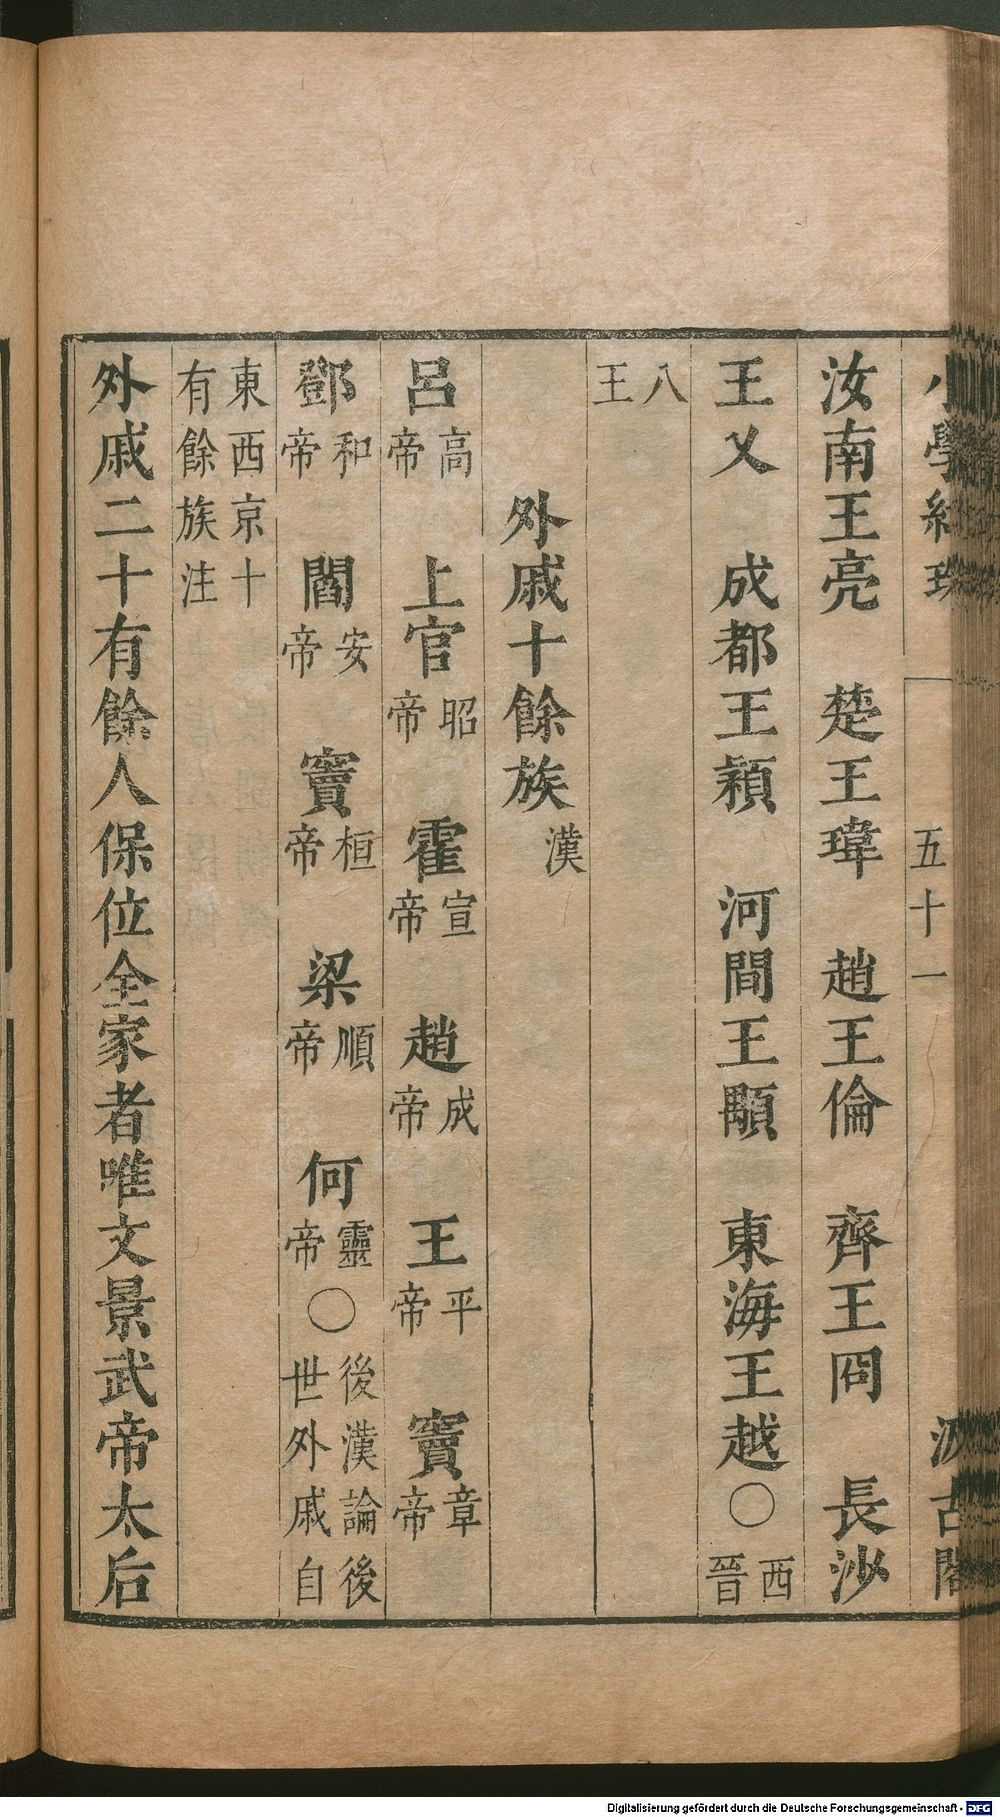 小學紺珠 五十一 汲古閣
汝南王亮 楚王瑋 趙王倫 齊王冏 長沙
王乂 成都王穎 河間王顒 東海王越〇西晉
八王
外戚十餘族漢
呂高帝 上官昭帝 霍宣帝 趙成帝 王平帝 竇章帝
鄧和帝 閻安帝 竇桓帝 梁順帝 何靈帝〇後漢論後世外戚自
東西京十有餘族注
外戚二十有餘人保位全家者唯文景武帝太后
Digitalisierung gefördert durch die Deutsche Forschungsgemeinschaft - DFG